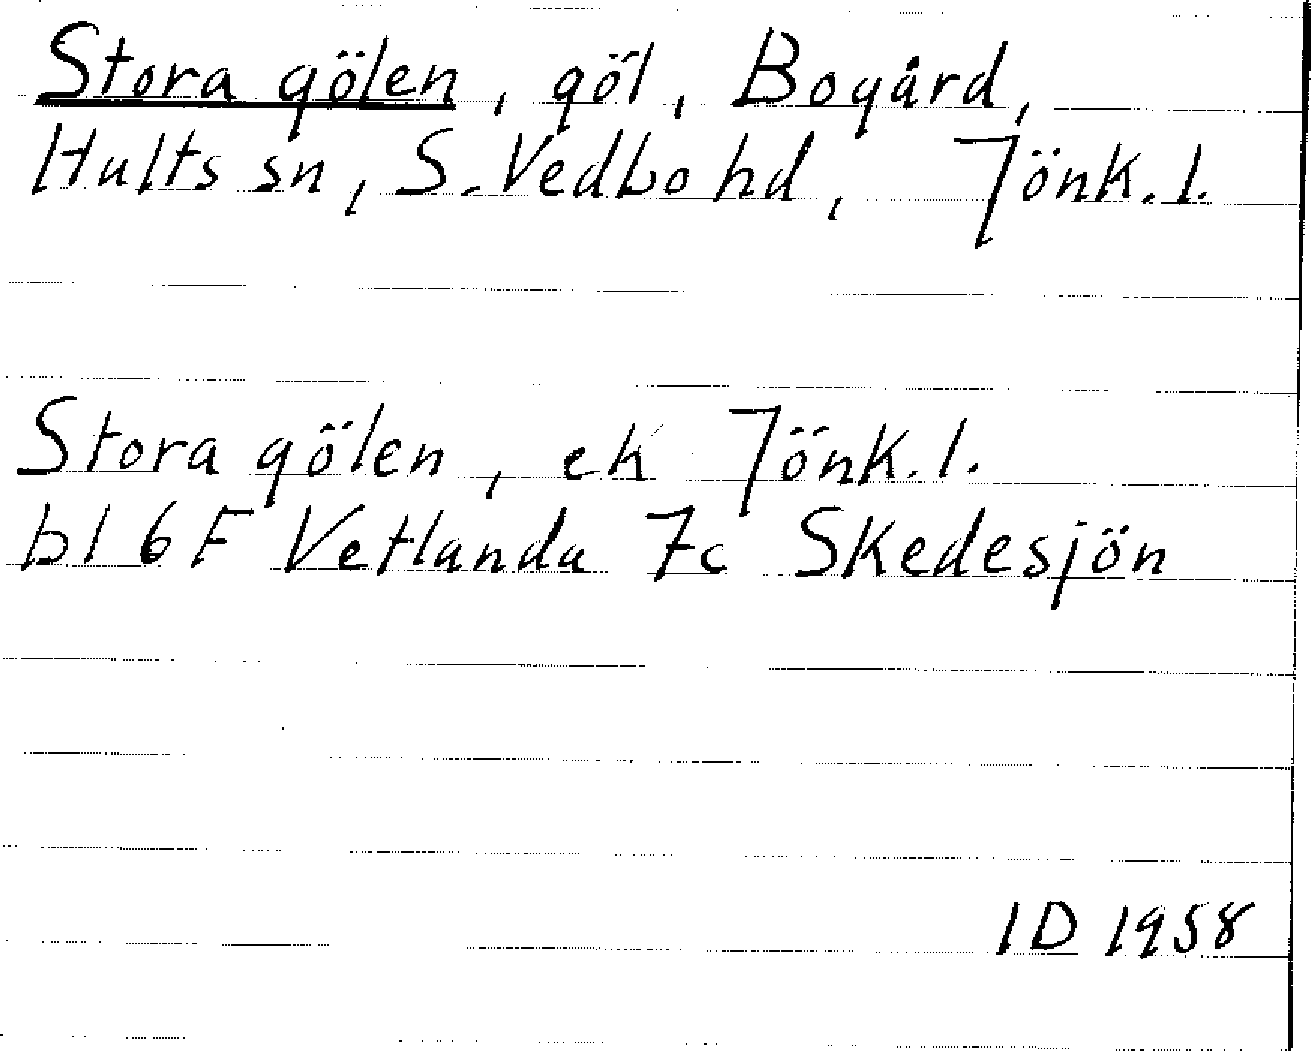 Stora gölen, göl, Bogård,
Hults sn, S. Vedbo hd, Jönk. l.
Stora gölen, ek Jönk. l.
bl 6 F Vetlanda 7c Skedesjön
ID 1958